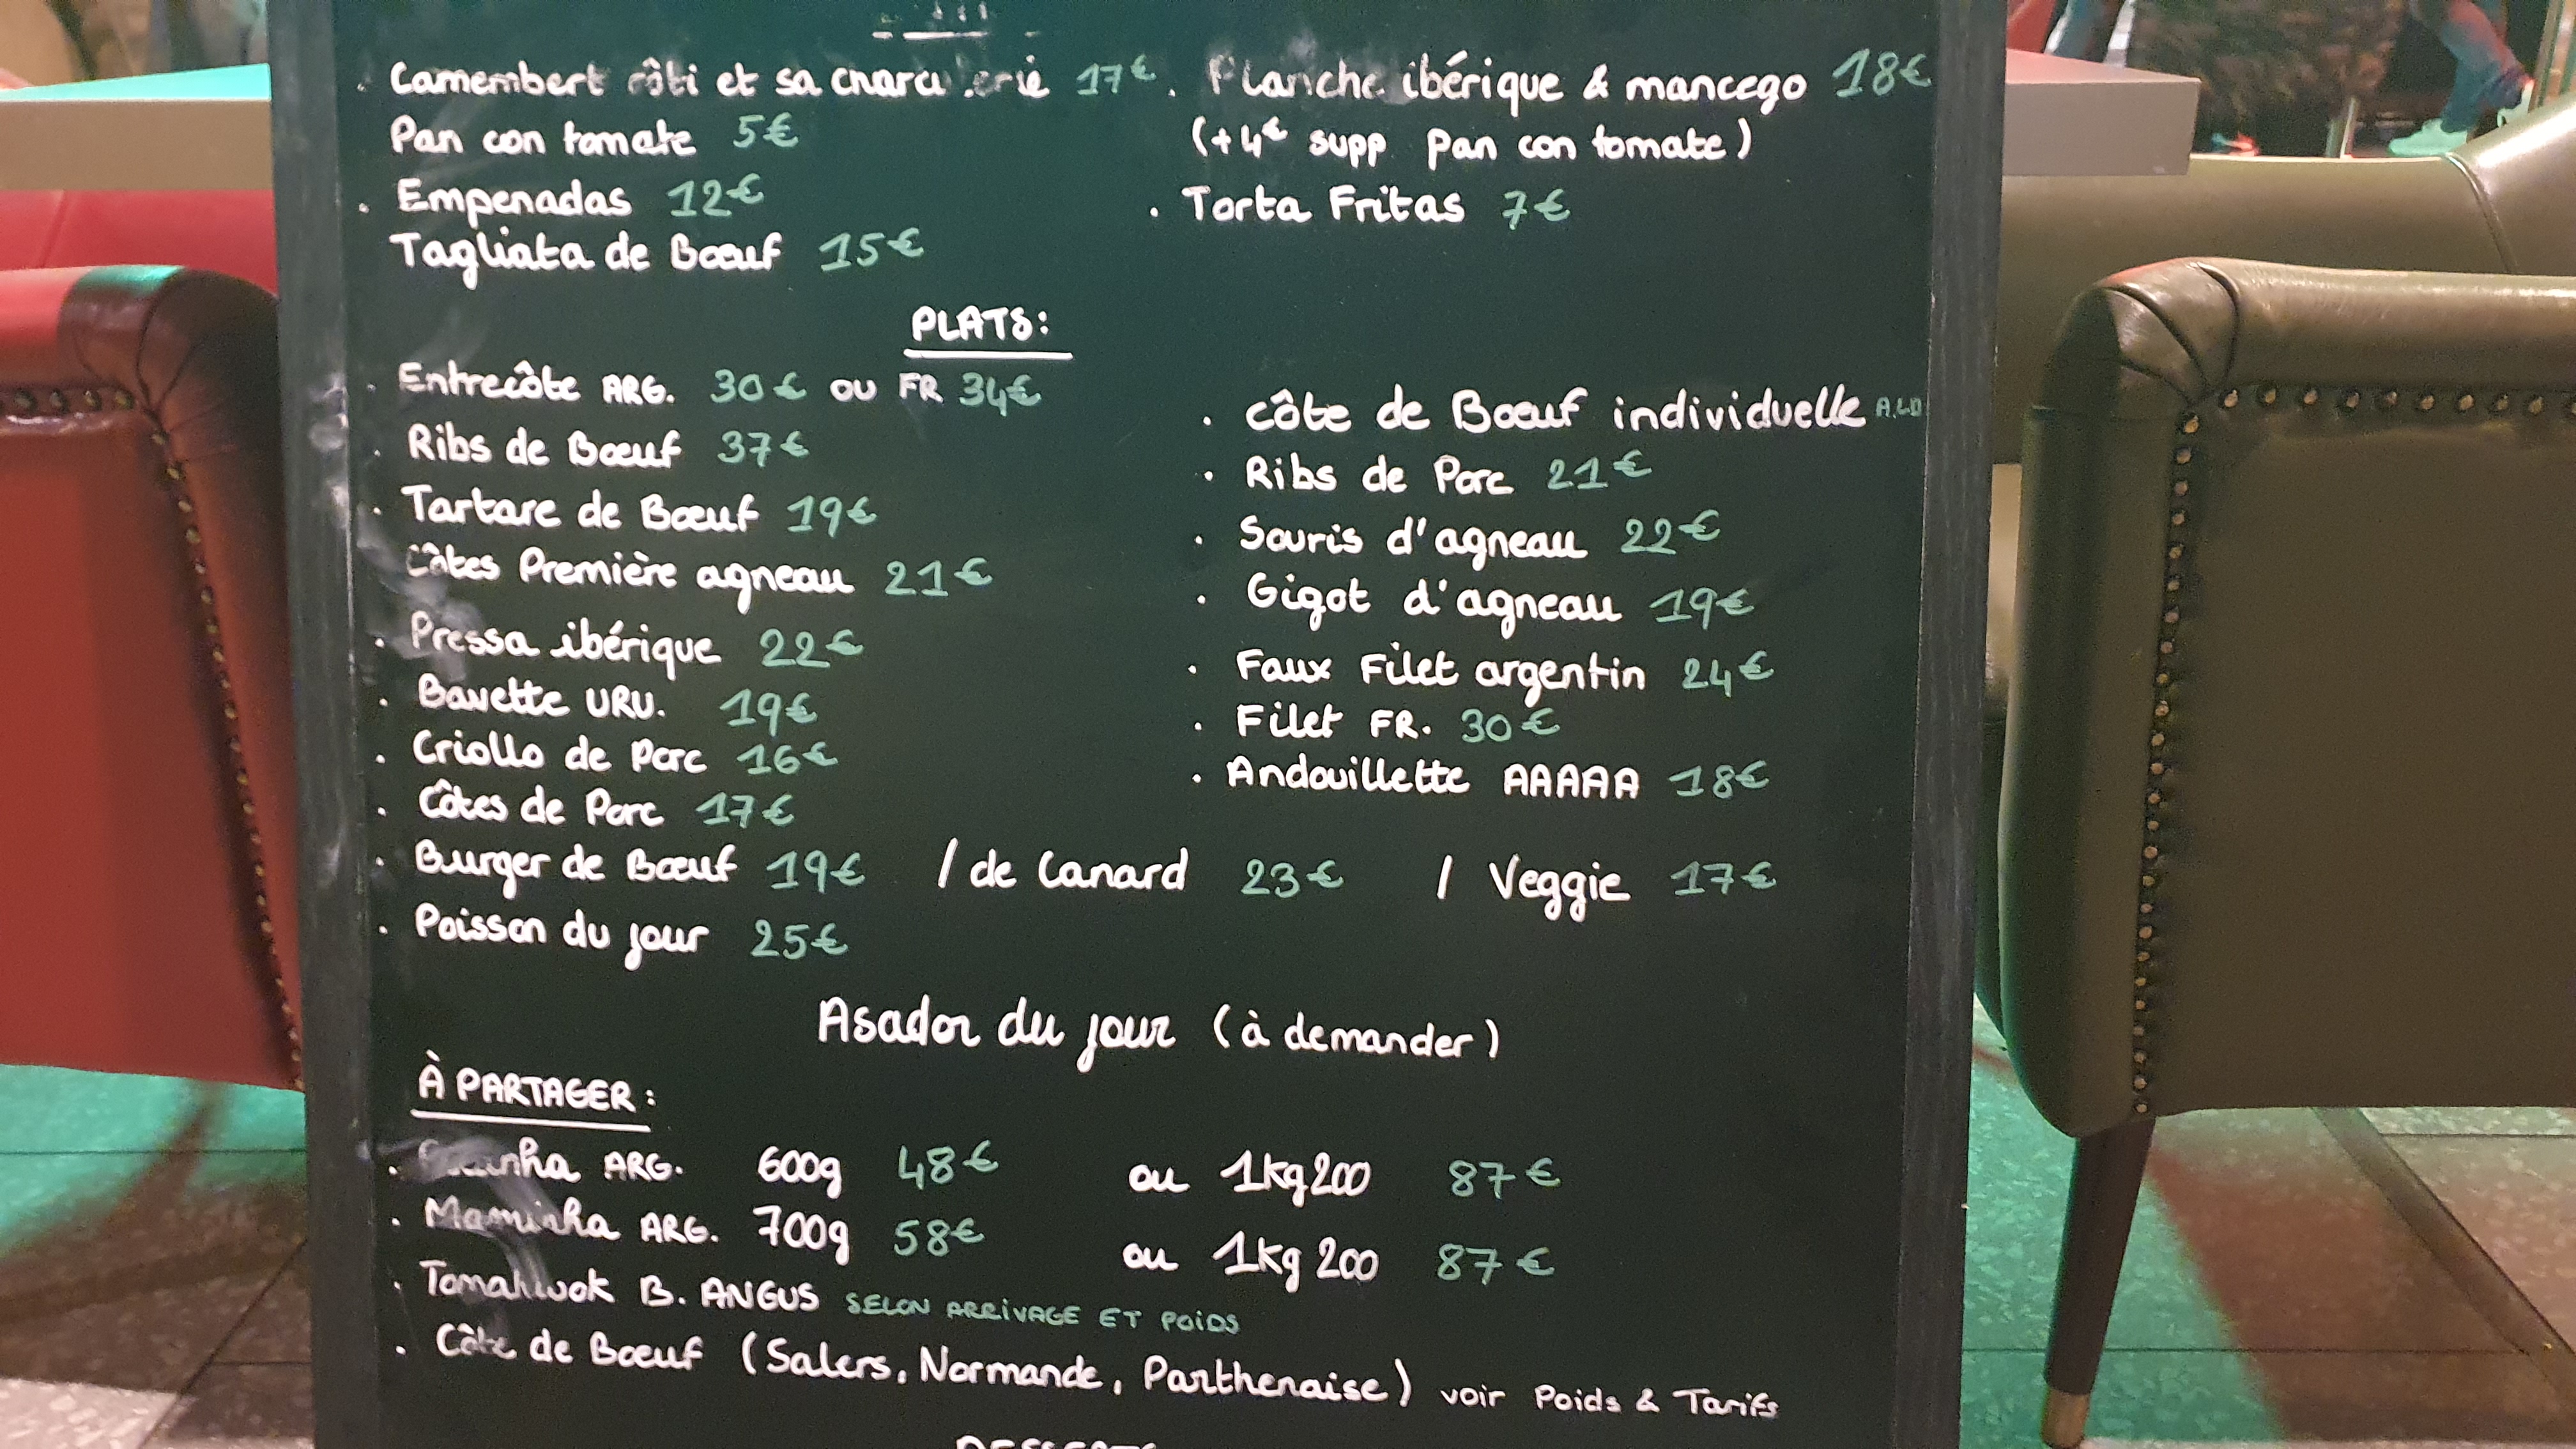 . Camembert rôti et sa charcuterie 17€
Pan con tomate 5€
. Empenadas 12€
Tagliata de Bœuf 15€
. Planche ibérique & mancego 18€
(+4€ supp pan con tomate)
. Torta Fritas 7€
PLATS:
. Entrecôte ARG. 30€ ou FR 34€
. Ribs de Bœuf 37€
. Tartare de Bœuf 19€
Côtes Première agneau 21€
. Pressa ibérique 22€
. Bavette URU. 19€
. Criollo de Porc 16€
. Côtes de Porc 17€
. côte de Bœuf individuelle
. Ribs de Porc 21€
. Souris d'agneau 22€
. Gigot d'agneau 19€
. Faux Filet argentin 24€
. Filet FR. 30€
. Andouillette AAAAA 18€
. Burger de Bœuf 19€ / de Canard 23€ / Veggie 17€
. Poisson du jour 25€
Asador du jour (à demander)
À PARTAGER:
. ARG. 600g 48€ ou 1kg200 87€
. Maminha ARG. 700g 58€ ou 1kg200 87€
. Tomahwok B. ANGUS SELON ARRIVAGE ET POIDS
. Côte de Bœuf (Salers, Normande, Parthenaise) voir Poids & Tarifs
DESSERTS